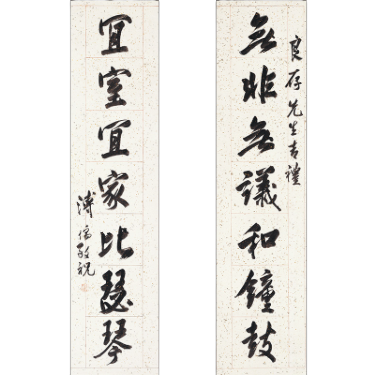 良存先生吉禮
無非無議和鐘鼓
宜室宜家比瑟琴
溥儒敬祝